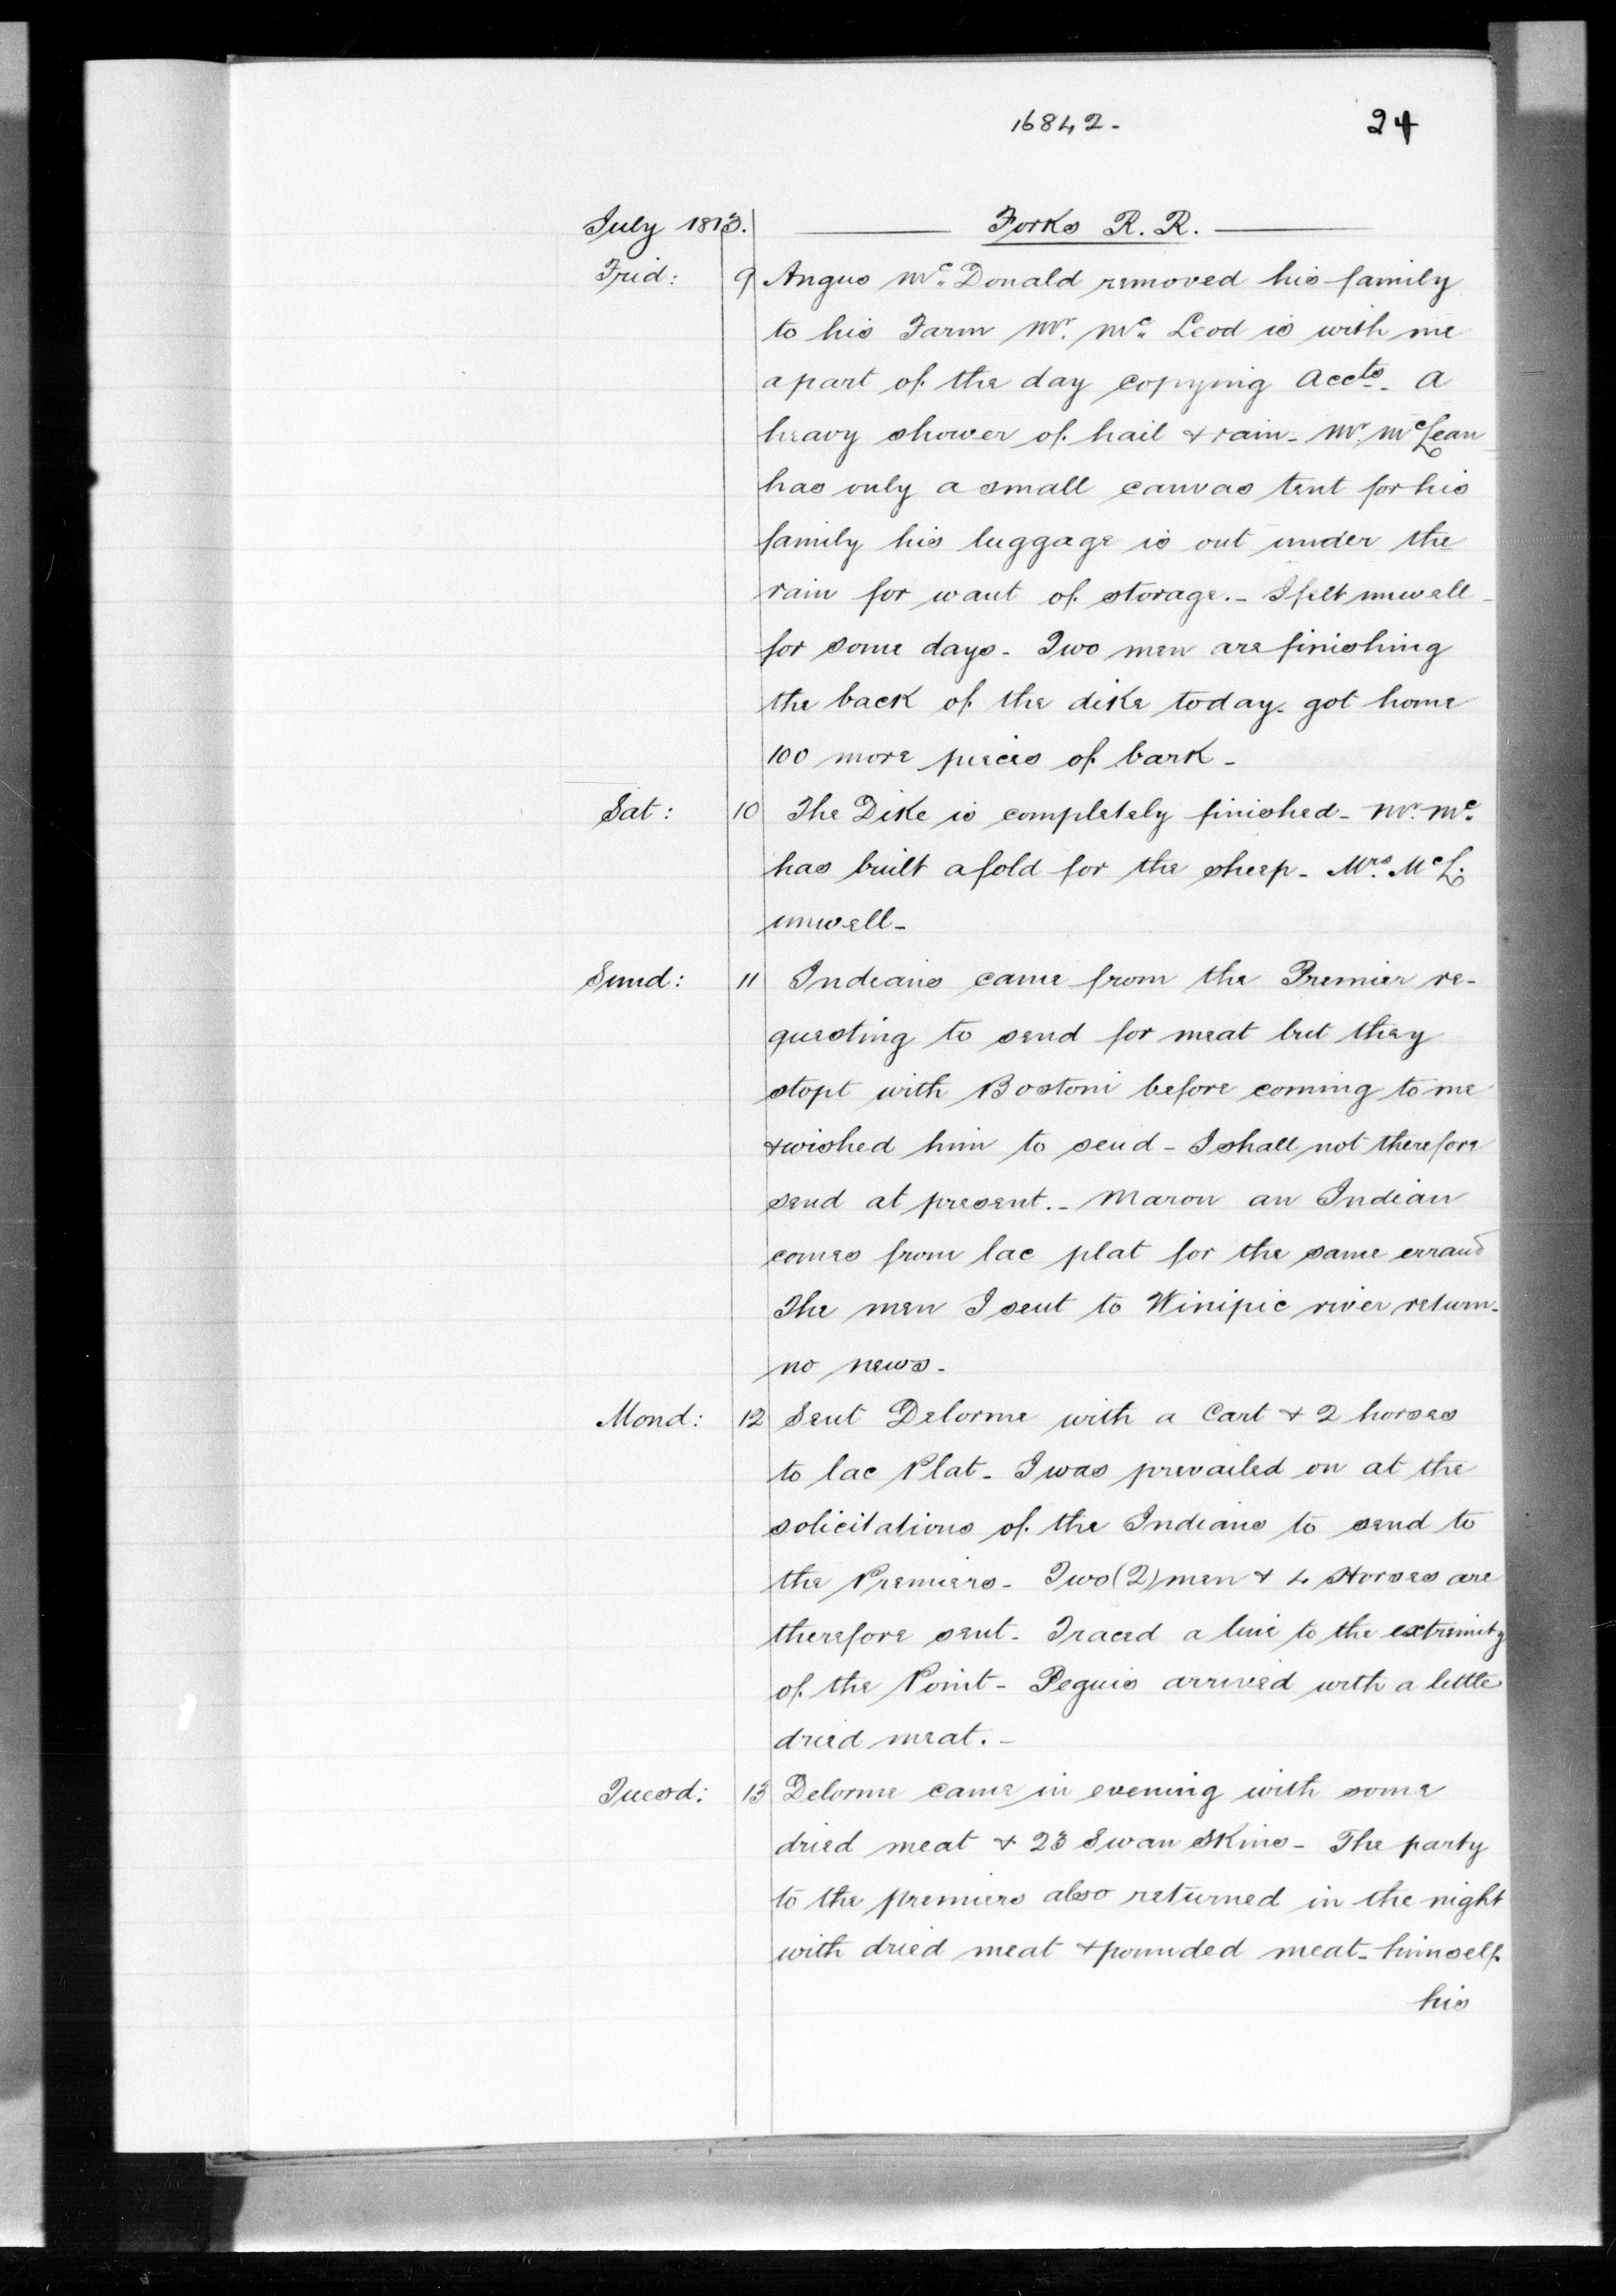 16842. 24
July 1813. Forks R. R.
Frid: 9 Angus Mc. Donald removed his family
to his Farm Mr. Mc. Leod is with me
a part of the day copying Accts. A
heavy shower of hail & rain - Mr. McLean
has only a small canvas tent for his
family his luggage is out under the
rain for want of storage. - I felt unwell -
for some days - Two men are finishing
the back of the dike today - got home
100 more pieces of bark -
Sat: 10 The Dike is completely finished - Mr. Mc.
has built a fold for the sheep - Mrs. McL.
unwell -
Sund: 11 Indians came from the Premier re-
questing to send for meat but they
stopt with Bostoni before coming to me
& wished him to send - I shall not therefore
send at present. - Maron an Indian
comes from lac plat for the same errand
The men I sent to Winipic river return -
no news -
Mond: 12 Sent Delorme with a Cart & 2 horses
to lac Plat - I was prevailed on at the
solicitations of the Indians to send to
the Premiers - Two (2) men & 4 Horses are
therefore sent - Traced a line to the extremity
of the Point - Peguis arrived with a little
dried meat. -
Tuesd: 13 Delorme came in evening with some
dried meat & 23 Swan Skins - The party
to the premiers also returned in the night
with dried meat & pounded meat - himself
his